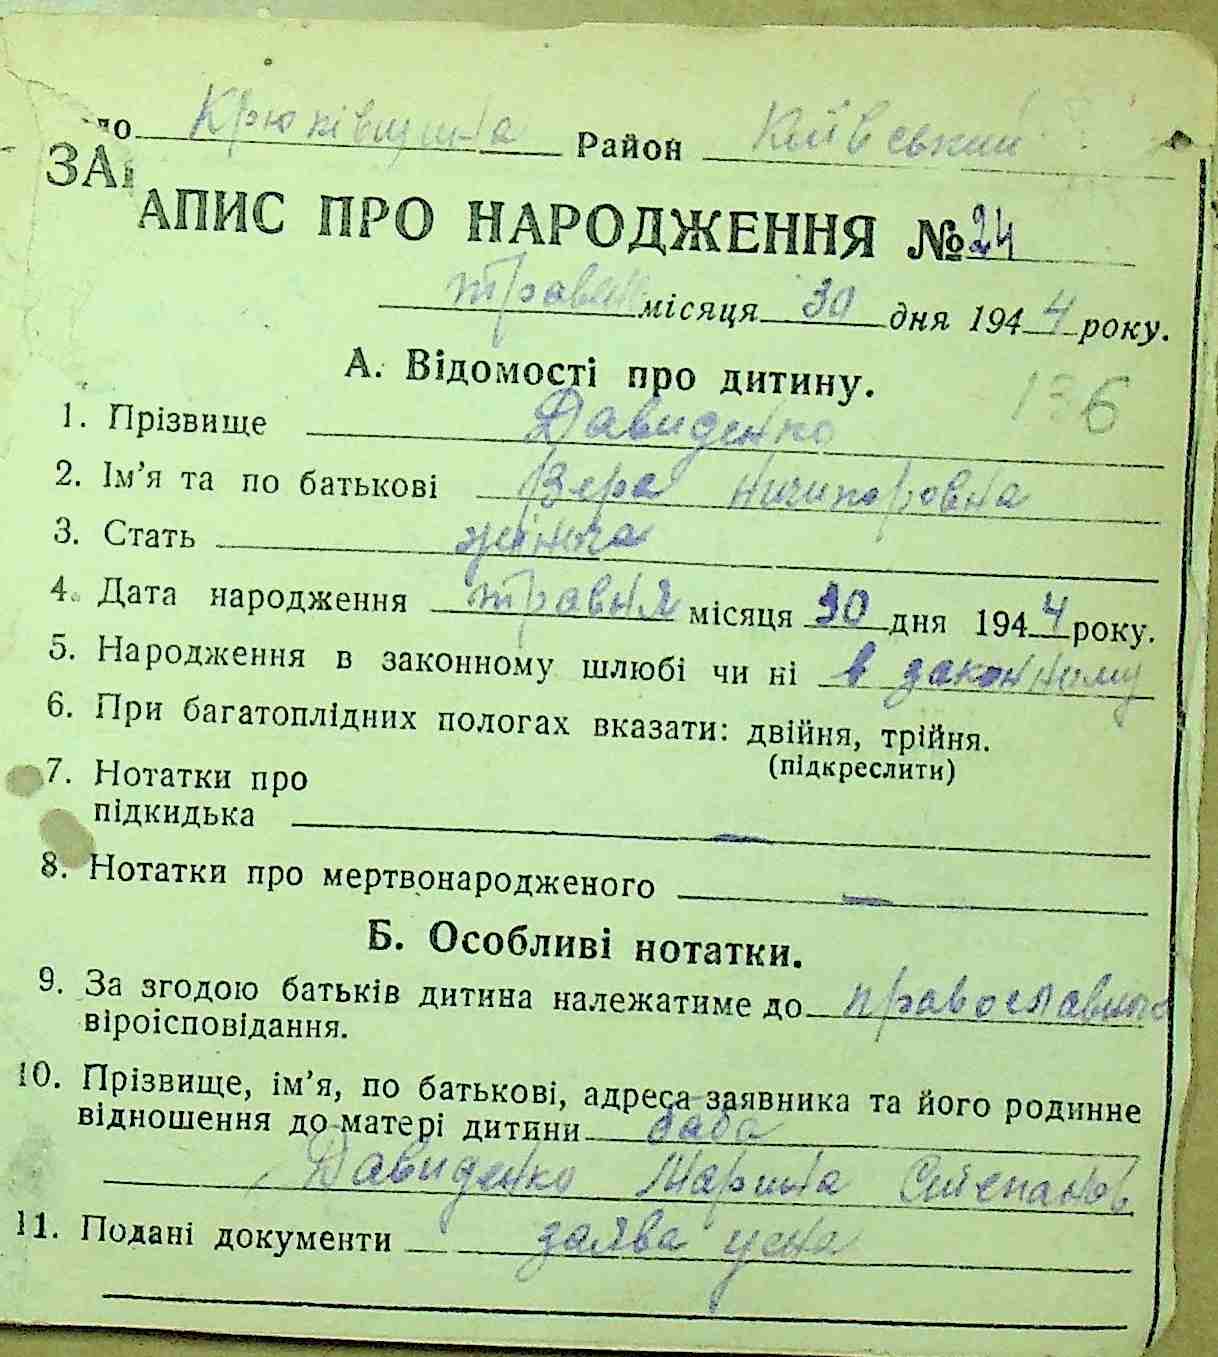 ло Крюківщина Район Київський
ЗАП
АПИС ПРО НАРОДЖЕННЯ №24
травня місяця 30 дня 1944 року.
А. Відомості про дитину.
136
1. Прізвище Давиденко
2. Ім’я та по батькові Вера Ничипоровна
3. Стать жіноча
4. Дата народження травня місяця 30 дня 1944 року.
5. Народження в законному шлюбі чи ні в законному
6. При багатоплідних пологах вказати: двійня, трійня.
(підкреслити)
7. Нотатки про
підкидька —
8. Нотатки про мертвонародженого —
Б. Особливі нотатки.
9. За згодою батьків дитина належатиме до православного
віроісповідання.
10. Прізвище, ім’я, по батькові, адреса заявника та його родинне
відношення до матері дитини баба
Давиденко Марина Степанов
11. Подані документи заява усна